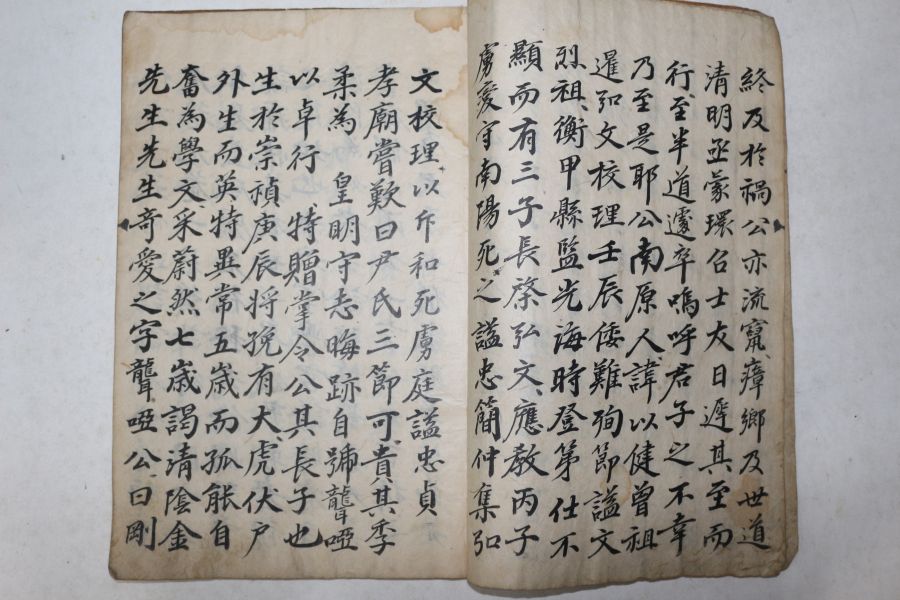 終及於禍公亦流竄瘴鄉及世道
清明亟蒙環召士友日遲其至而
行至半道遽卒嗚呼君子之不幸
乃至是耶公南原人諱以健曾祖
暹弘文校理壬辰倭難殉節諡文
烈祖衡甲縣監光海時登第仕不
顯而有三子長棨弘文應教丙子
虜變守南陽死之諡忠簡仲集弘
文校理以斥和死虜庭諡忠貞
孝廟嘗歎曰尹氏三節可貴其季
柔為 皇明守志晦跡自號聾啞
以卓行特贈掌令公其長子也
生於崇禎庚辰將挽有大虎伏戶
外生而英特異常五歲而孤能自
奮為學文采蔚然七歲謁清陰金
先生先生奇愛之字聾啞公曰剛